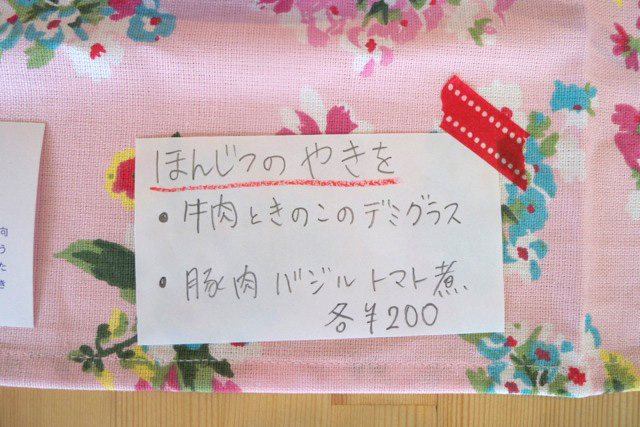 ほんじつの やきを
・牛肉ときのこのデミグラス
・豚肉 バジルトマト煮
各¥200
向
う
た
き